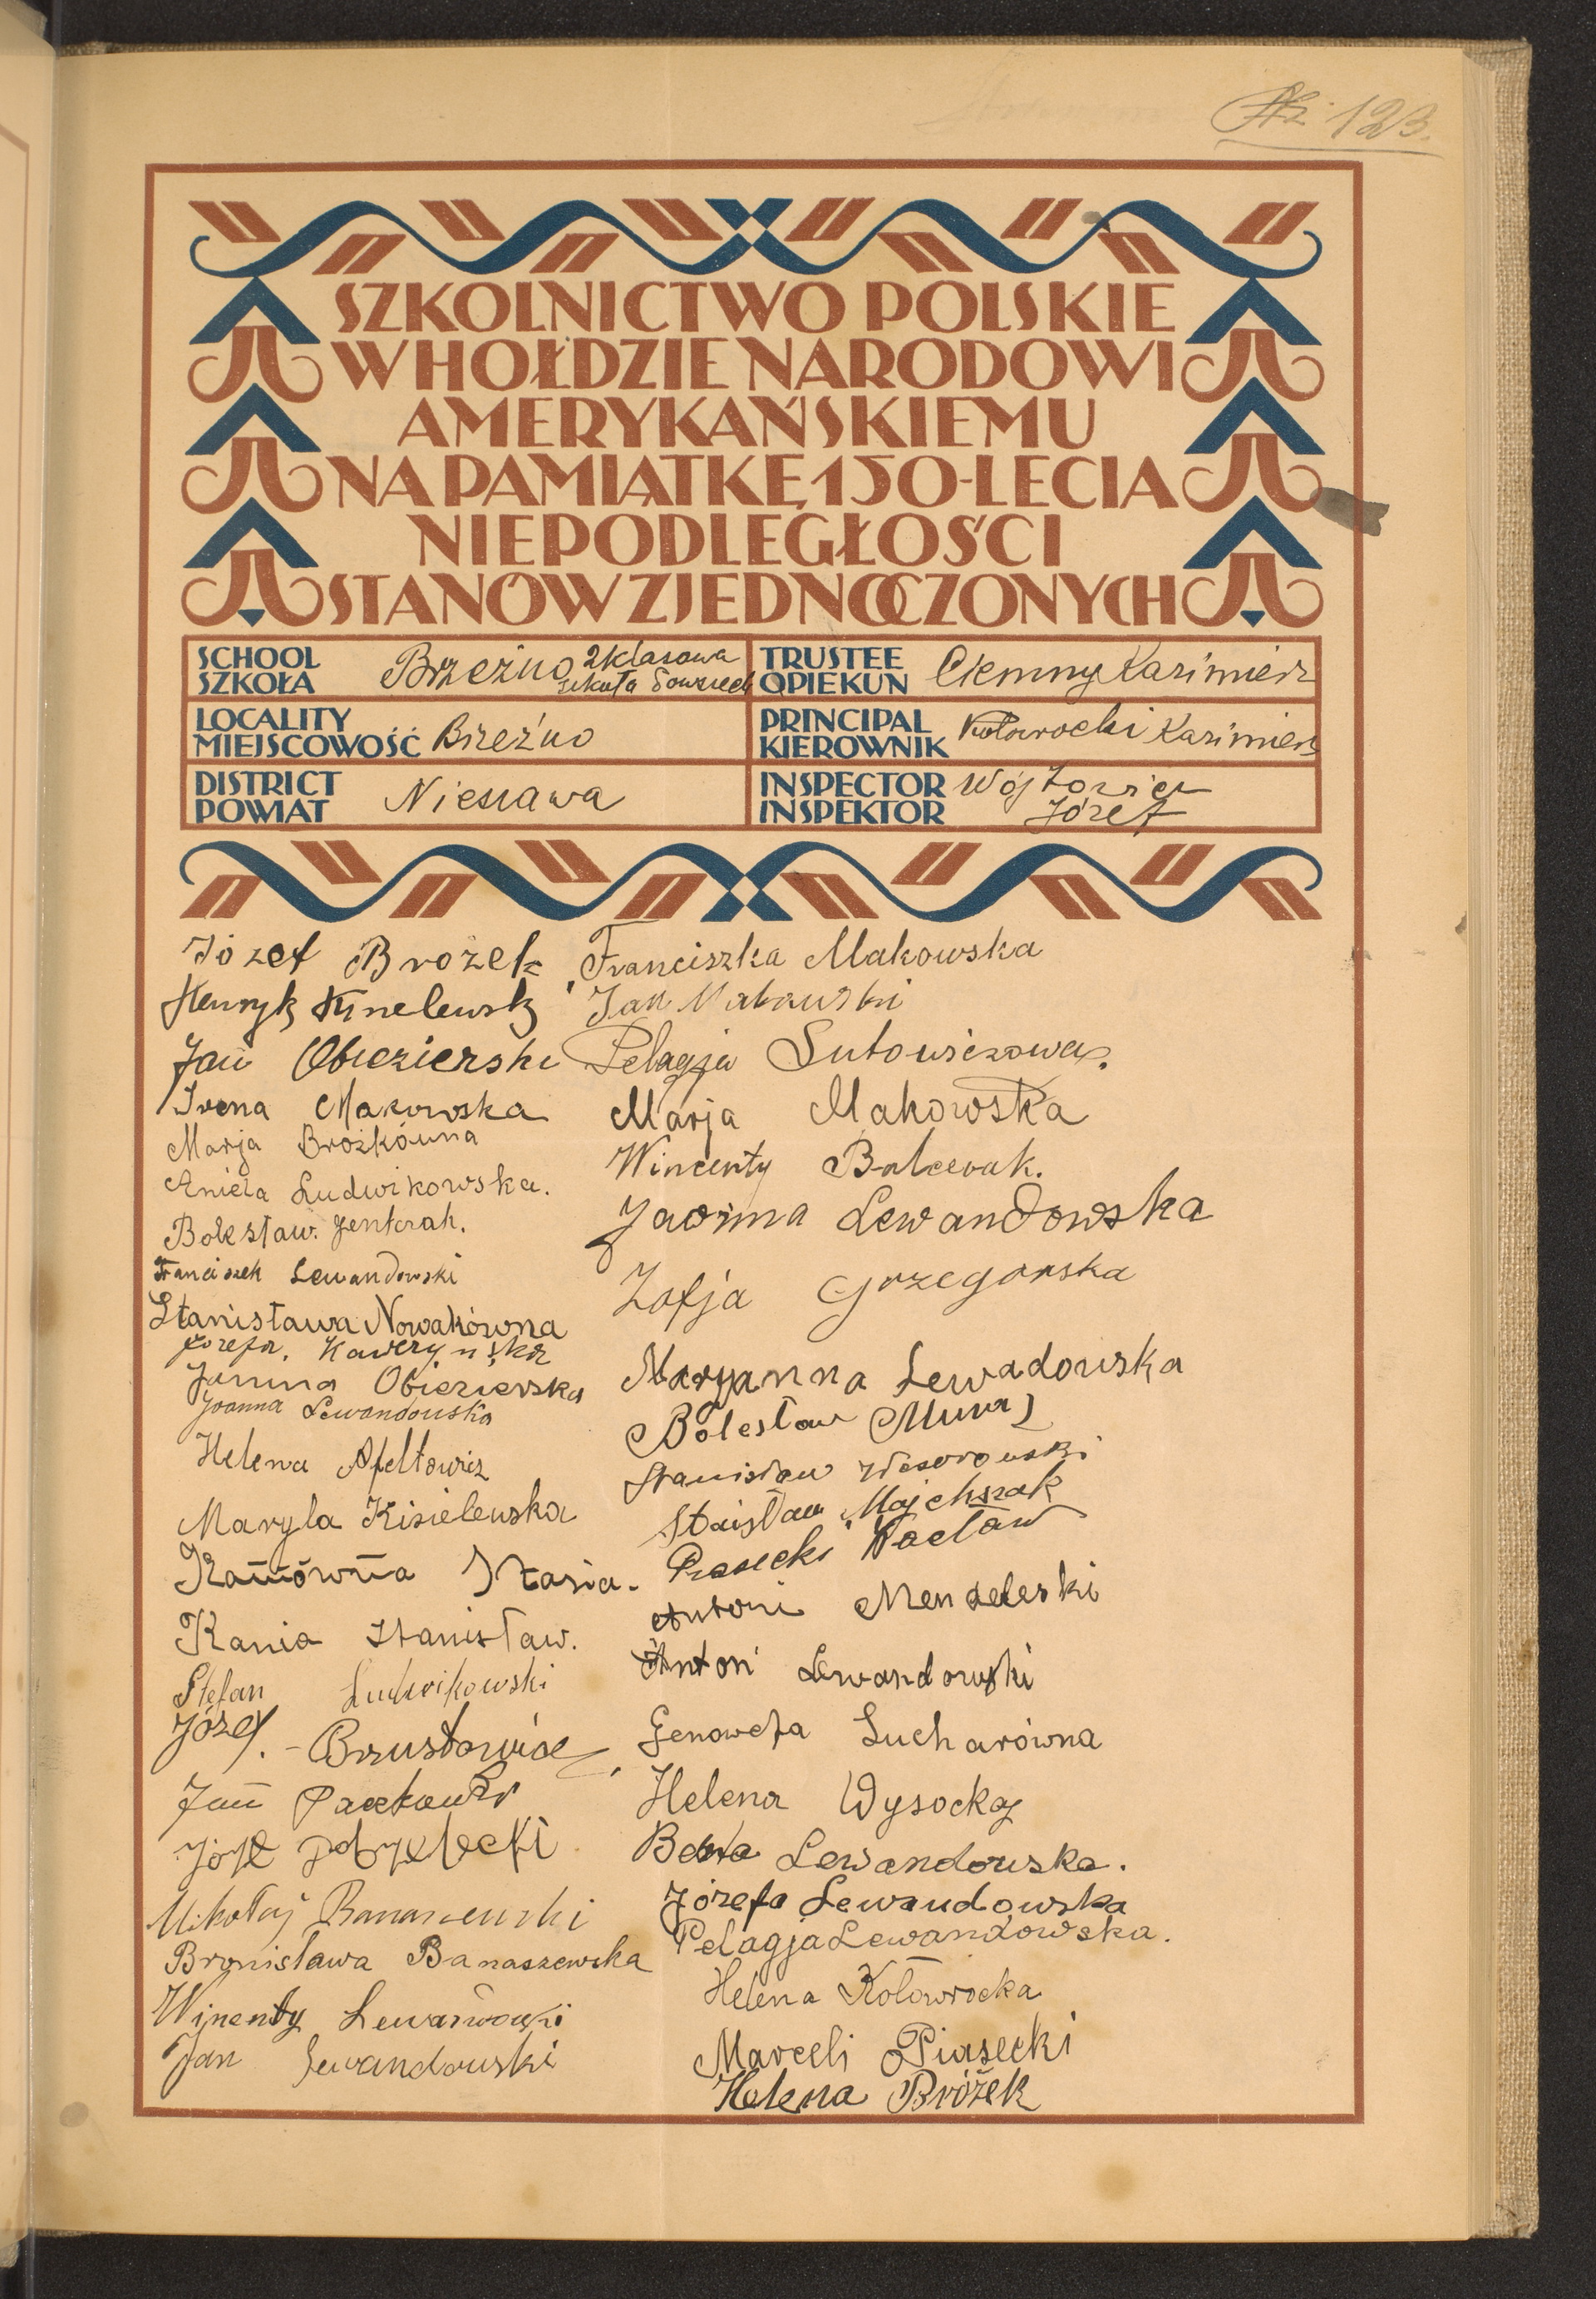 123.
SZKOLNICTWO POLSKIE
W HOŁDZIE NARODOWI
AMERYKAŃSKIEMU
NA PAMIĄTKĘ 150-LECIA
NIEPODLEGŁOŚCI
STANÓW ZJEDNOCZONYCH
SCHOOL
SZKOŁA
Brzeźno 2 klasowa
szkoła Powszech
TRUSTEE
OPIEKUN
Ciemny Kazimierz
LOCALITY
MIEJSCOWOŚĆ
Brzeźno
PRINCIPAL
KIEROWNIK
Kołowrocki Kazimierz
DISTRICT
POWIAT
Nieszawa
INSPECTOR
INSPEKTOR
Wójtowicz
Józef
Józef Brożek
Henryk
Jan Obiezierski
Irena Makowska
Marja Brożkówna
Aniela Ludwikowska.
Bolesław. Jentczak.
Franciszek Lewandowski
Stanisława Nowakówna
Józefa.
Janina Obiezierska
Joanna Lewandowska
Helena Afeltowicz
Maryla Kisielewska
Kaniówna Stasia.
Kania Stanisław.
Stefan Ludwikowski
Józef. - Brzustowicz
Jan
Józef
Mikołaj Banaszewski
Bronisława Banaszewska
Winenty
Jan Lewandowski
Franciszka Makowska
Jan Makowski
Pelagja
Marja Makowska
Wincenty Balcerak.
Janina Lewandowska
Zofja Grzegorska
Maryanna Lewadowska
Bolesław
Stanisław
Staisław Majchszak
Piasecki Wacław
Antoni
Antoni Lewandowski
Genowefa Lucharówna
Helena Wysocka
Lewandowska.
Józefa Lewandowska
Pelagja Lewandowska.
Helena Kołowrocka
Marceli Piasecki
Helena Bróżek